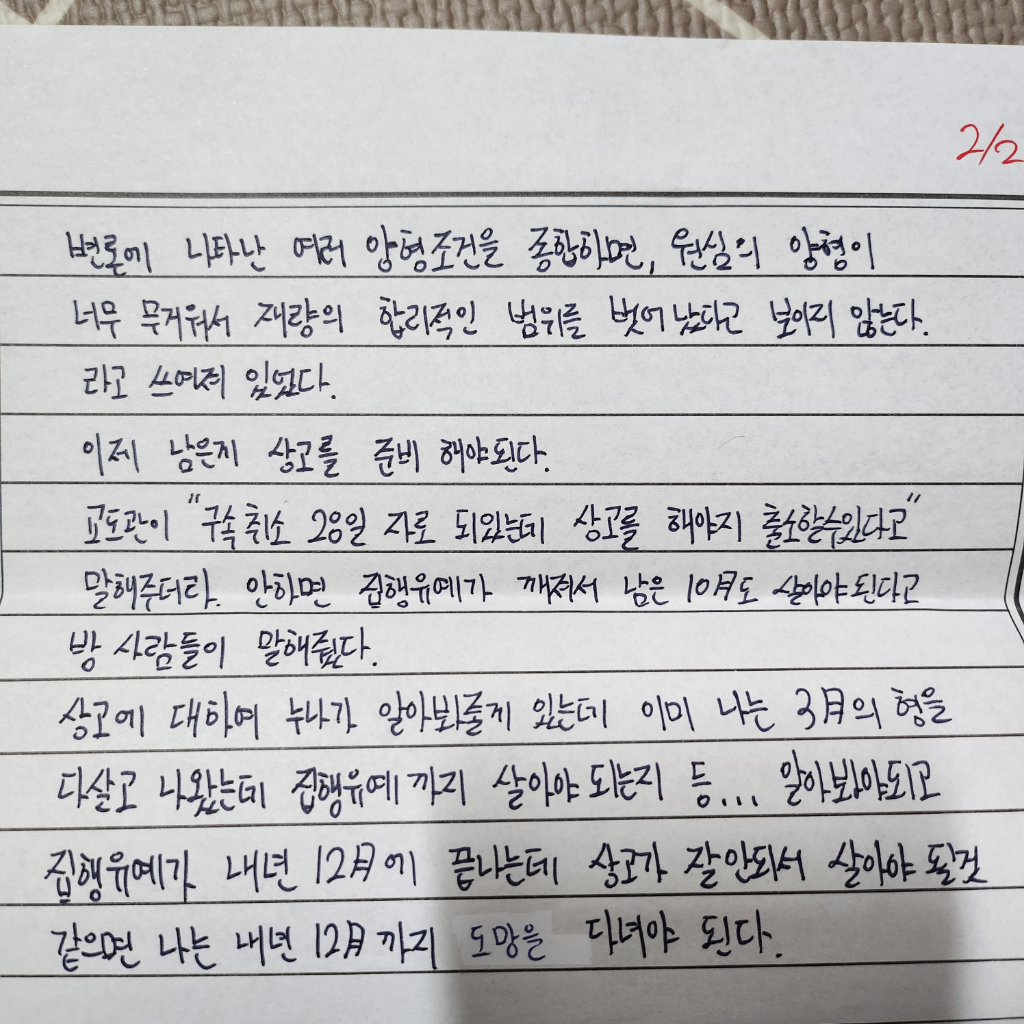 2/2
변론에 나타난 여러 양형조건을 종합하면, 원심의 양형이
너무 무거워서 재량의 합리적인 범위를 벗어났다고 보이지 않는다.
라고 쓰여져 있었다.
이제 남은지 상고를 준비 해야된다.
교도관이 "구속취소 28일 자로 되있는데 상고를 해야지 출소할수있다고"
말해주더라. 안하면 집행유예가 깨져서 남은 10月도 살아야된다고
방 사람들이 말해줬다.
상고에 대하여 누나가 알아봐줄게 있는데 이미 나는 3月의 형을
다살고 나왔는데 집행유예까지 살아야 되는지 등... 알아봐야되고
집행유예가 내년 12月에 끝나는데 상고가 잘안되서 살아야 될것
같으면 나는 내년 12月까지 도망을 다녀야 된다.